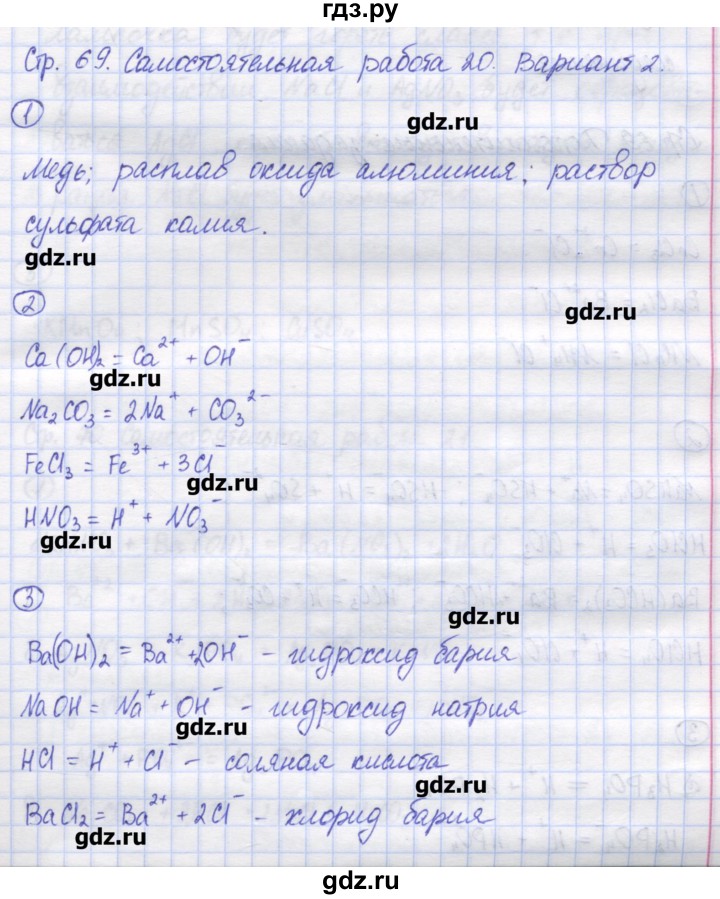 гдз.ру
Стр. 69. Самостоятельная работа 20. Вариант 2.
1
gdz.ru
Медь; расплав оксида алюминия; раствор
сульфата калия.
gdz.ru
2
gdz.ru
Ca(OH)₂ = Ca²⁺ + OH⁻
gdz.ru
Na₂CO₃ = 2Na⁺ + CO₃²⁻
FeCl₃ = Fe³⁺ + 3Cl⁻
gdz.ru
HNO₃ = H⁺ + NO₃⁻
gdz.ru
3
gdz.ru
Ba(OH)₂ = Ba²⁺ + 2OH⁻ - гидроксид бария
NaOH = Na⁺ + OH⁻ - гидроксид натрия
gdz.ru
HCl = H⁺ + Cl⁻ - соляная кислота
gdz.ru
BaCl₂ = Ba²⁺ + 2Cl⁻ - хлорид бария
gdz.ru
gdz.ru